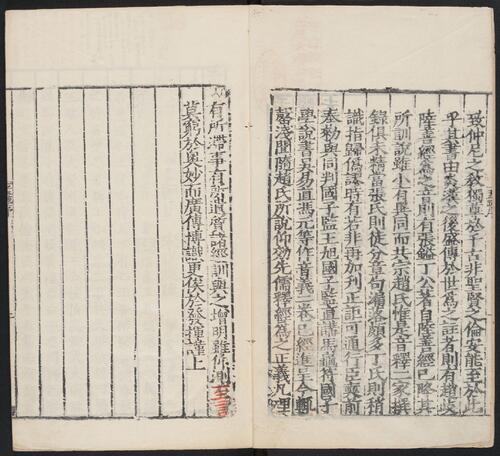 致仲尼之敎獨尊於千古非聖賢之倫安能至於此
乎其書由炎漢之後盛傳於世爲之註者則有趙岐
陸善經爲之音則有張鎰丁公著自陸善經已降其
所訓說雖小有異同而共宗趙氏惟是音釋二家撰
錄俱未精當張氏則徒分章句漏落頗多丁氏則稍
識指歸僞謬時有若非再加刊正詎可通行臣奭前
奉勑與同判國子監王旭國子監直講馬龜符國子
學說書吳易直馮元等作音義二卷已經進呈今輒
罄淺聞隨趙氏所說仰效先儒釋經爲之正義凡理
有所滯事有所遺質諸經訓與之增明雖仰測至言
莫窮於奧妙而廣傳博識更俟於發揮謹上